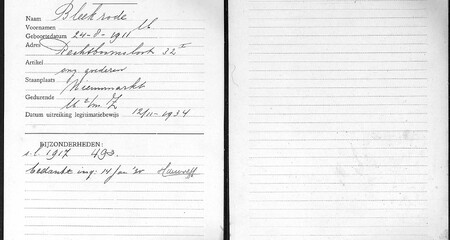 Naam Bleekrode
Voornamen M
Geboortedatum 24-8-1911
Adres Rechtboomsloot 32 II
Artikel
ong goederen
Staanplaats Nieuwmarkt
Gedurende
M t/m Z
Datum uitreiking legitimatiebewijs 12/11-1934
BIJZONDERHEDEN:
s.l. 1917 493.
bedankt ing: 14 Jan